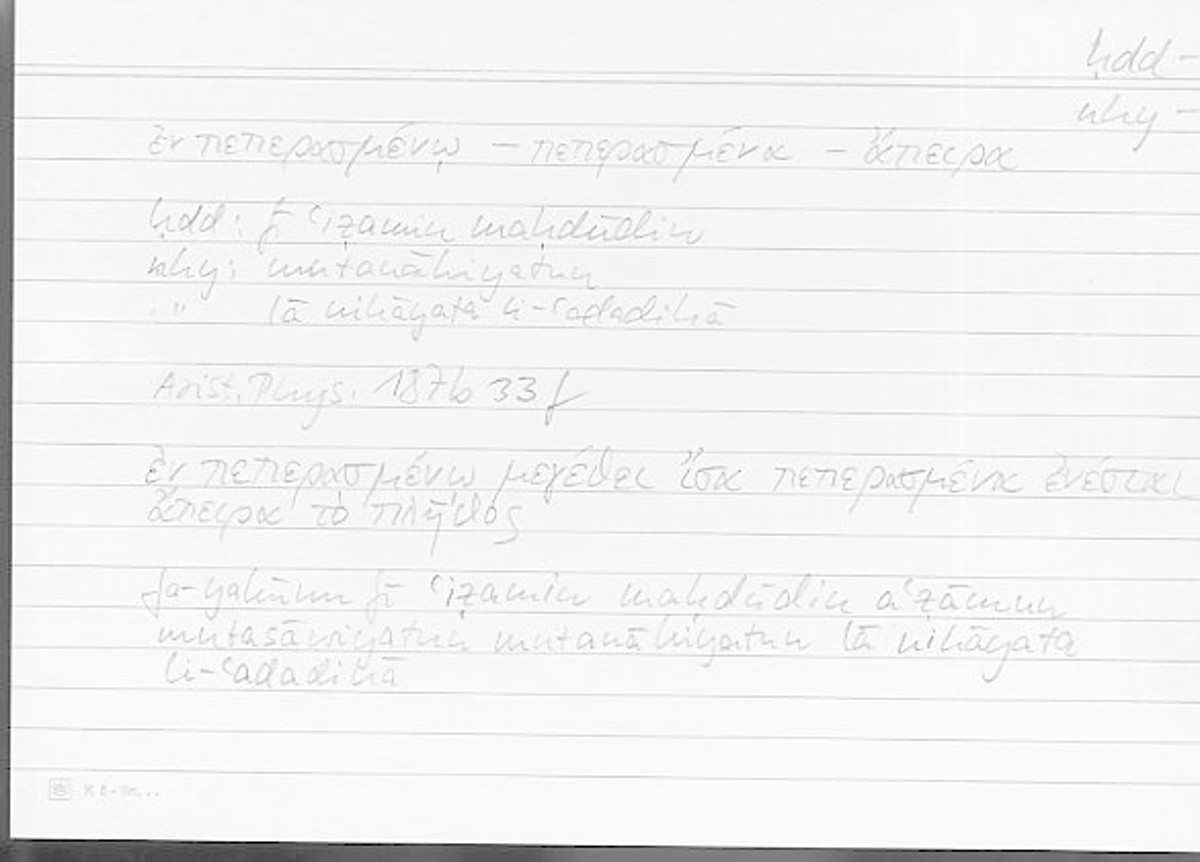 ḥdd –
nhy –
ἐν πεπερασμένῳ – πεπερασμένα – ἄπειρα
ḥdd: fī ʿiẓamin maḥdūdin
nhy: mutanāhiyatun
" lā nihāyata li-ʿadadihā
Arist. Phys. 187b 33 f
ἐν πεπερασμένῳ μεγέθει ἴσα πεπερασμένα ἐνέσται
ἄπειρα τὸ πλῆθος
fa-yakūnu fī ʿiẓamin maḥdūdin aʿẓāmun
mutasāwiyatun mutanāhiyatun lā nihāyata
li-ʿadadihā